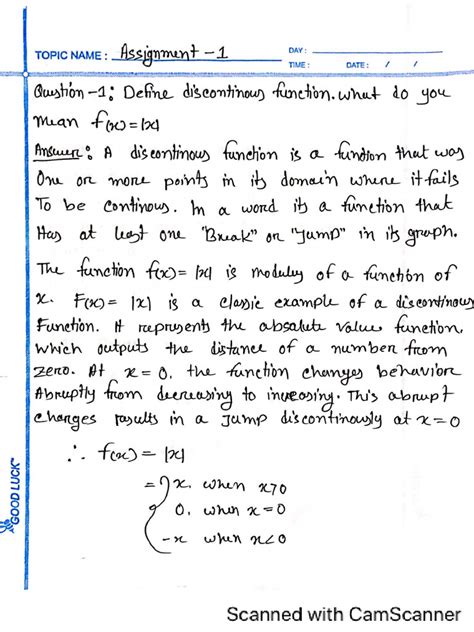 TOPIC NAME : Assignment - 1
DAY :
TIME :
DATE : / /
Question -1: Define discontinous function. what do you
mean f(x) = |x|
Answer : A discontinous function is a function that was
One or more points in its domain where it fails
To be continous. In a word its a function that
Has at least one "Break" or "Jump" in its graph.
The function f(x) = |x| is modulus of a function of
x. F(x) = |x| is a classic example of a discontinous
Function. It represents the absolute value function,
which outputs the distance of a number from
zero. At x = 0, the function changes behavior
Abruptly from decreasing to increasing. This abrupt
changes results in a Jump discontinously at x = 0
∴ f(x) = |x|
= { x, when x>0
0, when x = 0
-x when x<0
GOOD LUCK
Scanned with CamScanner